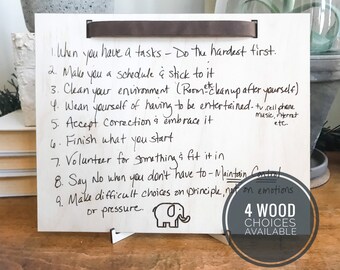 1. When you have a tasks - Do the hardest first.
2. Make you a schedule & stick to it
3. Clean your environment (Room etc clean up after yourself)
4. Wean yourself of having to be entertained. tv, cell phone
music, internet
etc.
5. Accept Correction & embrace it
6. Finish what you start
7. Volunteer for something & fit it in
8. Say No when you don't have to - Maintain Control
9. Make difficult choices on principle, not on emotions
or pressure
4 WOOD
CHOICES
AVAILABLE